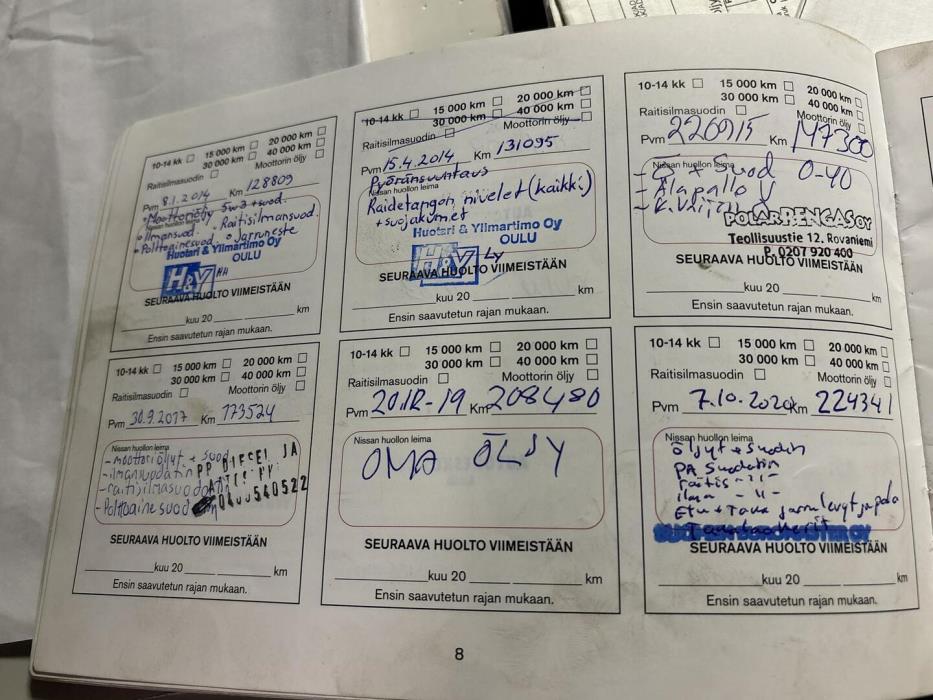 10-14 kk 15 000 km 20 000 km
30 000 km 40 000 km
Raitisilmasuodin Moottorin öljy
Pvm 8.1.2014 Km 128809
• Moottoriöljy 5w3 + suod.
Nissan huollon leima
• Ilmansuod. • Raitisilmansuod.
• Polttoainesuod. • Jarruneste
Huotari & Ylimartimo Oy
OULU
H&Y
SEURAAVA HUOLTO VIIMEISTÄÄN
kuu 20 km
Ensin saavutetun rajan mukaan.
10-14 kk 15 000 km 20 000 km
30 000 km 40 000 km
Raitisilmasuodin Moottorin öljy
Pvm 15.4.2014 Km 131095
Pyöränsuuntaus
Nissan huollon leima
Raidetangon nivelet (kaikki)
+ suojakumet
Huotari & Ylimartimo Oy
OULU
H&Y
SEURAAVA HUOLTO VIIMEISTÄÄN
kuu 20 km
Ensin saavutetun rajan mukaan.
10-14 kk 15 000 km 20 000 km
30 000 km 40 000 km
Raitisilmasuodin Moottorin öljy
Pvm 220915 Km 147300
Nissan huollon leima
+ Suod 0-40
- Alapallo V
POLARRENGAS OY
Teollisuustie 12. Rovaniemi
P. 0207 920 400
SEURAAVA HUOLTO VIIMEISTÄÄN
kuu 20 km
Ensin saavutetun rajan mukaan.
10-14 kk 15 000 km 20 000 km
30 000 km 40 000 km
Raitisilmasuodin Moottorin öljy
Pvm 30.9.2017 Km 173524
Nissan huollon leima
- moottoriöljyt + suod
- ilmansuodatin PP DIESEL JA
- raitisilmasuodatin
- Polttoaine suodatin 0400540522
SEURAAVA HUOLTO VIIMEISTÄÄN
kuu 20 km
Ensin saavutetun rajan mukaan.
10-14 kk 15 000 km 20 000 km
30 000 km 40 000 km
Raitisilmasuodin Moottorin öljy
Pvm 20.12-19 Km 208480
Nissan huollon leima
OMA ÖLJY
SEURAAVA HUOLTO VIIMEISTÄÄN
kuu 20 km
Ensin saavutetun rajan mukaan.
10-14 kk 15 000 km 20 000 km
30 000 km 40 000 km
Raitisilmasuodin Moottorin öljy
Pvm 7.10.2020 Km 224341
Nissan huollon leima
Öljyt + Suodin
PA Suodatin
raitis -"-
ilma -"-
Etu + Taka jarrulevyt ja pala
SEURAAVA HUOLTO VIIMEISTÄÄN
kuu 20 km
Ensin saavutetun rajan mukaan.
8